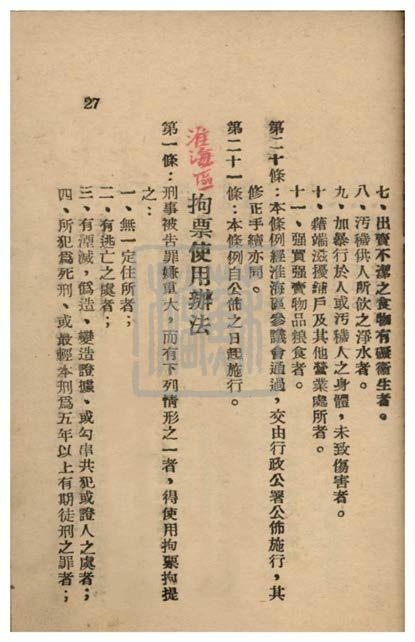 七、出賣不潔之食物有礙衞生者。
八、汚穢供人所飲之淨水者。
九、加暴行於人或汚穢人之身體，未致傷害者。
十、藉端滋擾舖戶及其他營業處所者。
十一、强買强賣物品粮食者。
第二十條：本條例經淮海區參議會通過，交由行政公署公佈施行，其
修正手續亦同。
第二十一條：本條例自公佈之日起施行。
淮海區
拘票使用辦法
第一條：刑事被告罪嫌重大，而有下列情形之一者，得使用拘票拘提
之：
一、無一定住所者；
二、有逃亡之處者；
三、有湮滅，僞造、變造證據、或勾串共犯或證人之處者；
四、所犯爲死刑、或最輕本刑爲五年以上有期徒刑之罪者；
27